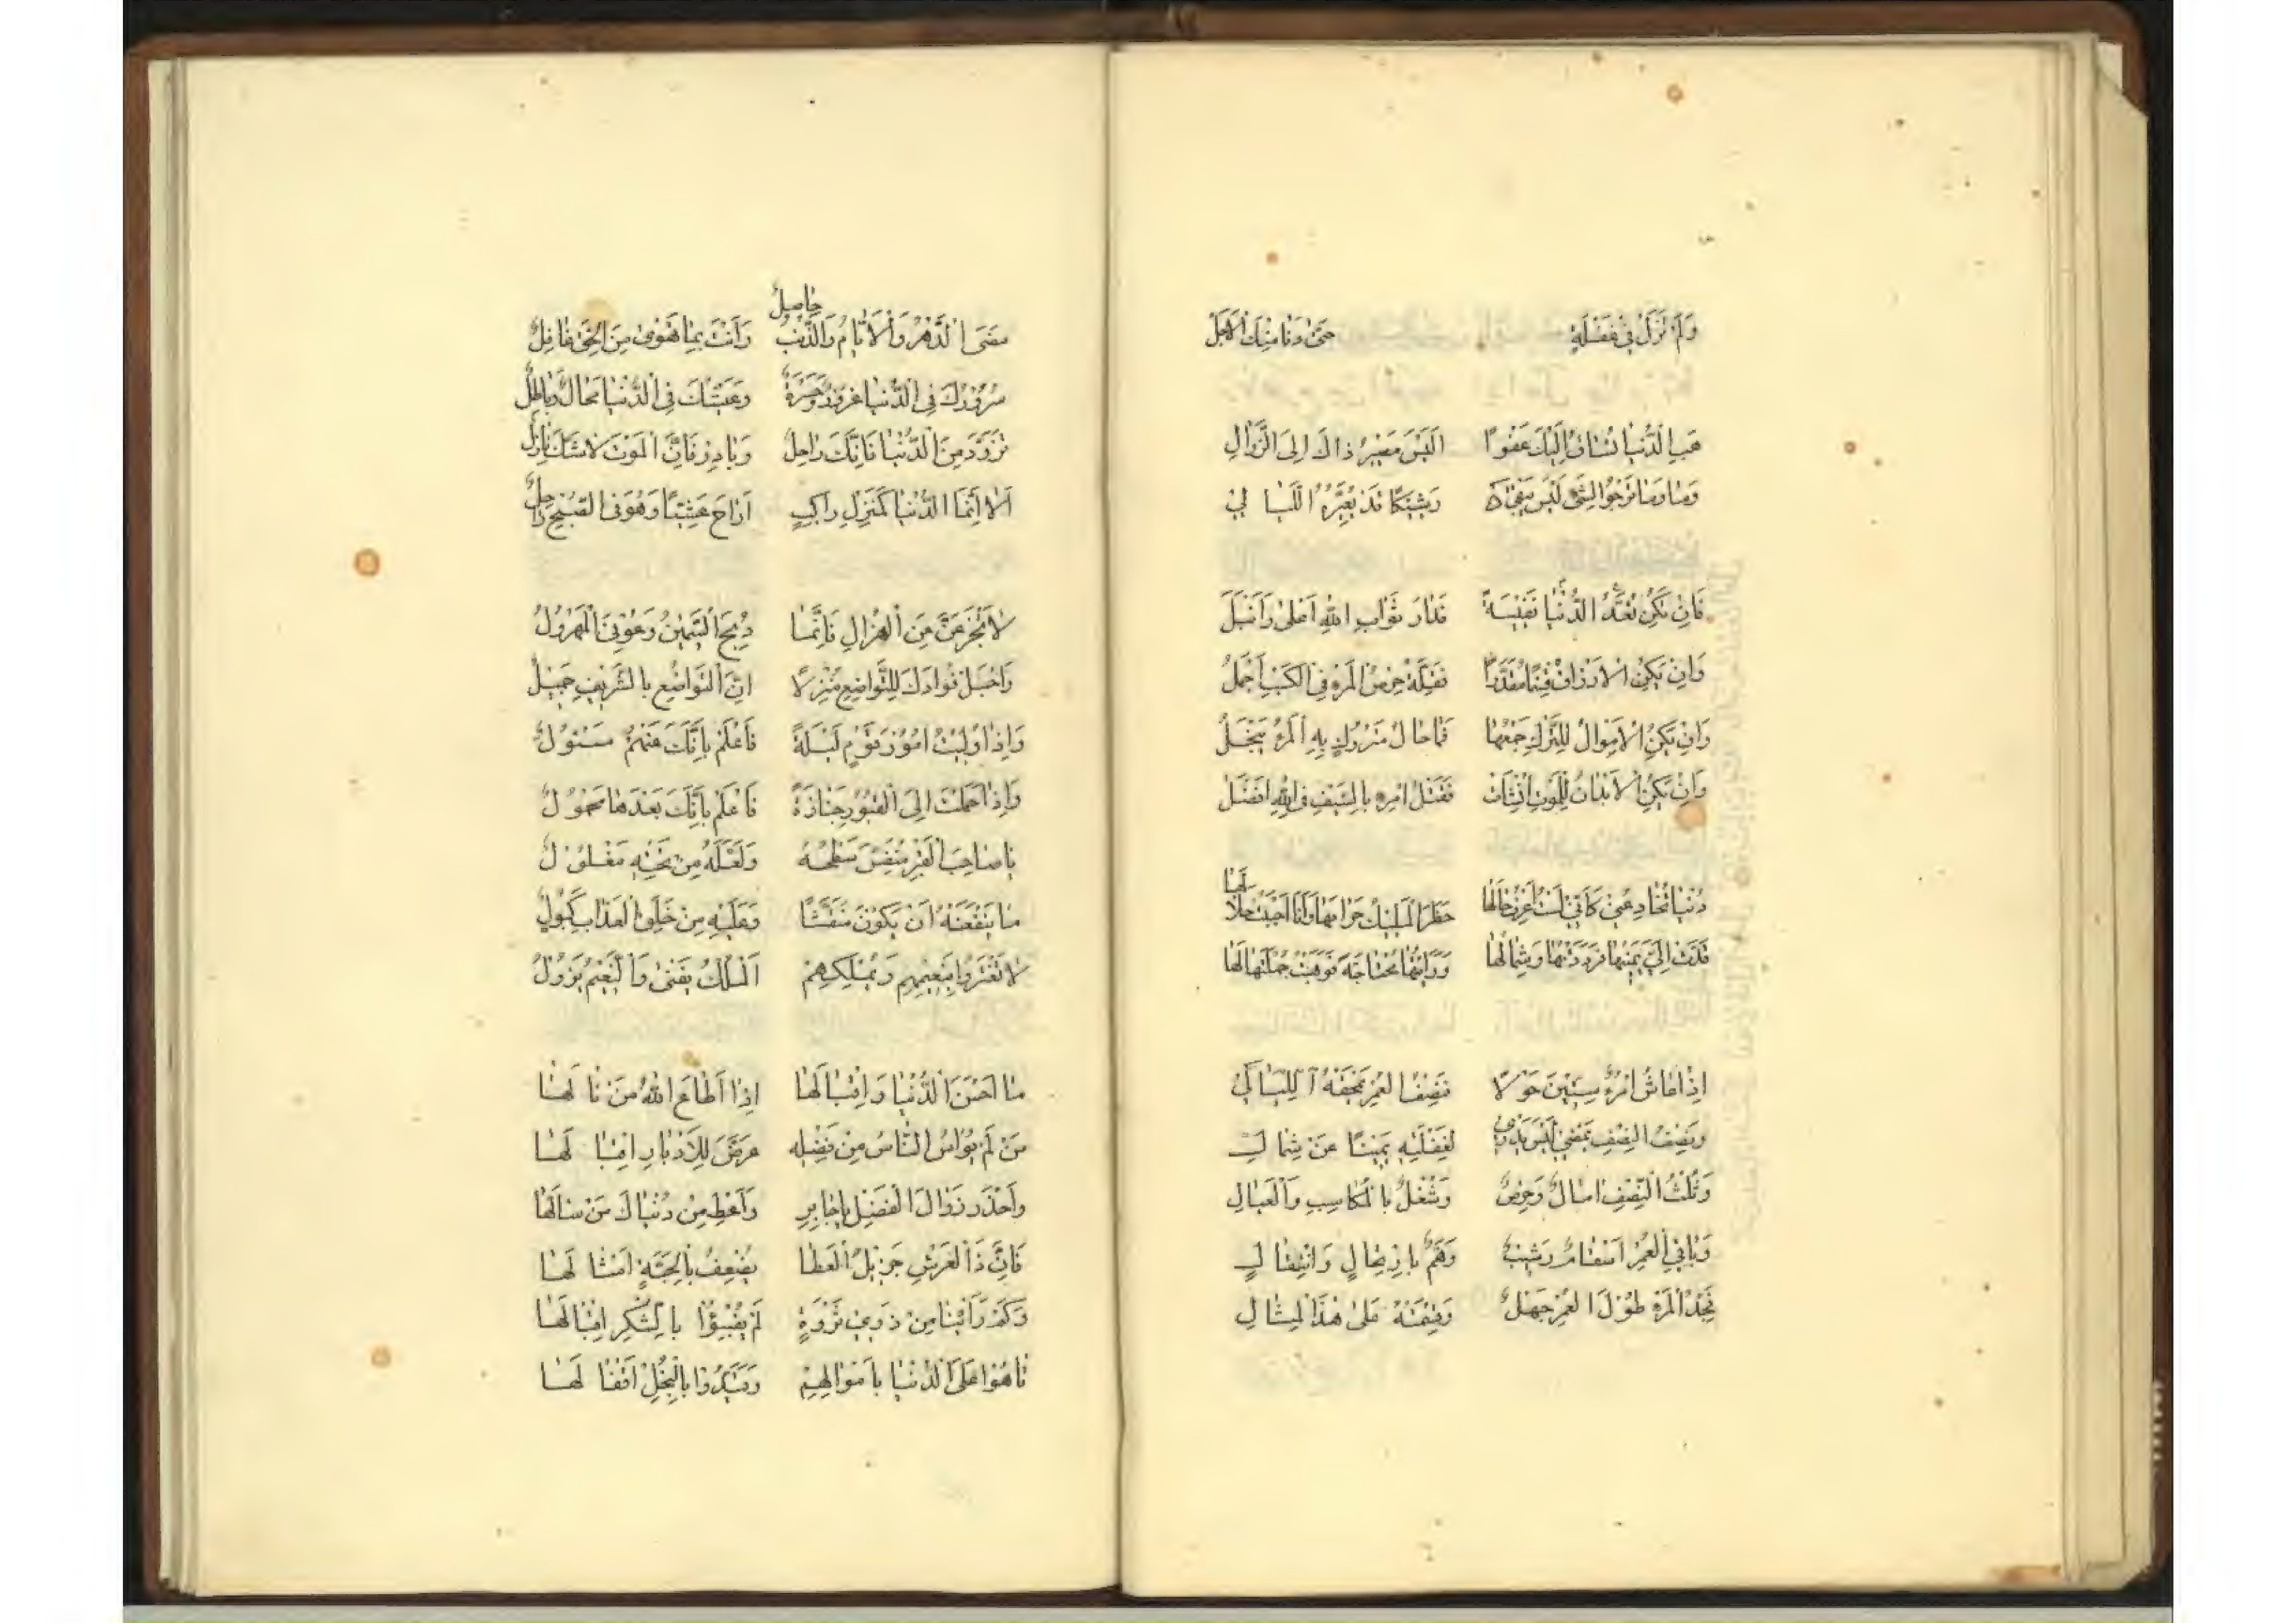 وَلَمْ تَزَلْ فِي غَفْلَةٍ حَتّى دَنَا مِنْكَ الْاَجَلْ
هَبِ الدُّنْيَا تُسَاقُ اِلَيْكَ عَفْوًا اَلَيْسَ مَصِيرُ ذَاكَ اِلَى الزَّوَالِ
وَمَا تَرْجُوا لِشَيْءٍ لَيْسَ يَبْقَى وَشِيكًا قَدْ يُغَيِّرُهُ اللَّيَالِي
فَاِنْ تَكُنِ الدُّنْيَا تُعَدُّ نَفِيسَةً فَدَارُ ثَوَابِ اللّٰهِ اَعْلٰى وَاَنْبَلُ
وَاِنْ يَكُنِ الْاَرْزَاقُ قِسْمًا مُقَدَّرًا فَقِلَّةُ حِرْصِ الْمَرْءِ فِي الْكَسْبِ اَجْمَلُ
وَاِنْ تَكُنِ الْاَمْوَالُ لِلتَّرْكِ جَمْعُهَا فَمَا بَالُ مَتْرُوكٍ بِهِ الْمَرْءُ يَبْخَلُ
وَاِنْ تَكُنِ الْاَبْدَانُ لِلْمَوْتِ اُنْشِأَتْ فَقَتْلُ امْرِءٍ بِالسَّيْفِ فِي اللّٰهِ اَفْضَلُ
دُنْيَا تُخَادِعُنِي كَاَنِّي لَسْتُ اَعْرِفُ حَالَهَا حَظَرَ الْمَلِيكُ حَرَامَهَا وَاَنَا اجْتَنَبْتُ حَلَالَهَا
مَدَّتْ اِلَيَّ يَمِينَهَا فَرَدَدْتُهَا وَشِمَالَهَا وَرَاَيْتُهَا مُحْتَاجَةً فَوَهَبْتُ جُمْلَتَهَا لَهَا
اِذَا عَاشَ امْرُءٌ سِتِّينَ حَوْلًا فَنِصْفُ الْعُمْرِ تَمْحَقُهُ اللَّيَالِي
وَنِصْفُ النِّصْفِ يَمْضِي لَيْسَ يَدْرِي لِغَفْلَتِهِ يَمِينًا عَنْ شِمَالِ
وَثُلْثُ النِّصْفِ اٰمَالٌ وَحِرْصٌ وَشُغْلٌ بِالْمَكَاسِبِ وَالْعِيَالِ
وَبَاقِي الْعُمْرِ اَسْقَامٌ وَشَيْبٌ وَهَمٌّ بِارْتِحَالٍ وَانْتِقَالِ
فَحُبُّ الْمَرْءِ طُوْلَ الْعُمْرِ جَهْلٌ وَقِسْمَتُهُ عَلٰى هٰذَا الْمِثَالِ
مَضَى الدَّهْرُ وَالْاَيَّامُ وَالذَّنْبُ حَاصِلٌ وَاَنْتَ بِمَا تَهْوٰى مِنَ الْحَقِّ غَافِلُ
سُرُوْرُكَ فِي الدُّنْيَا غُرُوْرٌ وَحَسْرَةٌ وَعَيْشُكَ فِي الدُّنْيَا مَحَالٌ وَبَاطِلُ
تَزَوَّدْ مِنَ الدُّنْيَا فَاِنَّكَ رَاحِلٌ وَبَادِرْ فَاِنَّ الْمَوْتَ لَا شَكَّ نَازِلُ
اَلَا اِنَّمَا الدُّنْيَا كَمَنْزِلِ رَاكِبٍ اَرَاحَ عَشِيًّا وَهُوَ فِي الصُّبْحِ رَاحِلٌ
لَا تَجْزَعَنَّ مِنَ الْهُزَالِ فَاِنَّمَا ذُبِحَ السَّمِينُ وَعُوْفِيَ الْمَهْزُوْلُ
وَاجْعَلْ فُوَادَكَ لِلتَّوَاضُعِ مَنْزِلًا اِنَّ التَّوَاضُعَ بِالشَّرِيفِ جَمِيلُ
وَاِذَا وُلِّيتَ اُمُوْرَ قَوْمٍ لَيْلَةً فَاعْلَمْ بِاَنَّكَ عَنْهُمْ مَسْئُوْلُ
وَاِذَا حَمَلْتَ اِلَى الْقُبُوْرِ جَنَازَةً فَاعْلَمْ بِاَنَّكَ بَعْدَهَا مَحْمُوْلُ
يَا صَاحِبَ الْقَبْرِ الْمُنَقَّشِ سَطْحُهُ وَلَعَلَّهُ مِنْ تَحْتِهِ مَغْلُوْلُ
مَا يَنْفَعَنْهُ اَنْ يَكُوْنَ مُنَقَّشًا وَعَلَيْهِ مِنْ حَلَقِ الْعَذَابِ كُبُوْلُ
لَا تَغْتَرُّوا بِنَعِيمِهِمْ وَبِمُلْكِهِمْ اَلْمُلْكُ يَفْنٰى وَالنَّعِيمُ يَزُوْلُ
مَا اَحْسَنَ الدُّنْيَا وَاِقْبَالَهَا اِذَا اَطَاعَ اللّٰهَ مَنْ نَالَهَا
مَنْ لَمْ يُوَاسِ النَّاسَ مِنْ فَضْلِهِ عَرَّضَ لِلْاِدْبَارِ اِقْبَالَهَا
وَاحْذَرْ زَوَالَ الْفَضْلِ يَا جَابِرُ وَاَعْطِ مِنْ دُنْيَاكَ مَنْ سَالَهَا
فَاِنَّ ذَا الْعَرْشِ جَزِيلُ الْعَطَا يُضْعِفُ بِالْحَبَّةِ اَمْثَالَهَا
وَكَمْ رَاَيْنَا مِنْ ذَوِي ثَرْوَةٍ لَمْ يَقْبَلُوْا بِالشُّكْرِ اِقْبَالَهَا
تَاهُوْا عَلَى الدُّنْيَا بِاَمْوَالِهِمْ وَقَيَّدُوْا بِالْبُخْلِ اَقْفَالَهَا